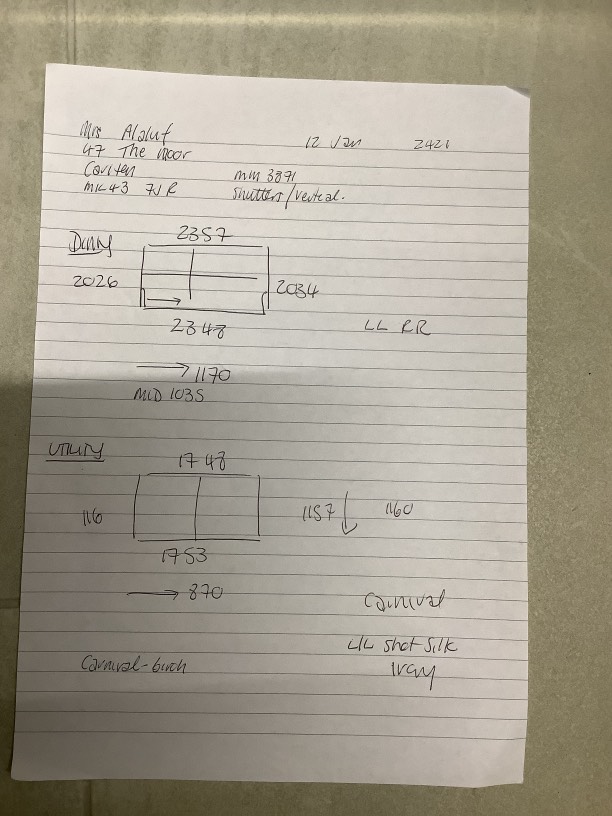 Mrs Alaluf 12 Jan 2421
47 The Moor
Carlten mm 3891
MK43 7JR Shutters/vertical.
Dinny
2357
2026 2034
2348 LL RR
1170
MID 1035
UTILITY
1748
116 1157 1160
1753
870
Carnival
LIL Shot Silk
Carnival-birch Ivory